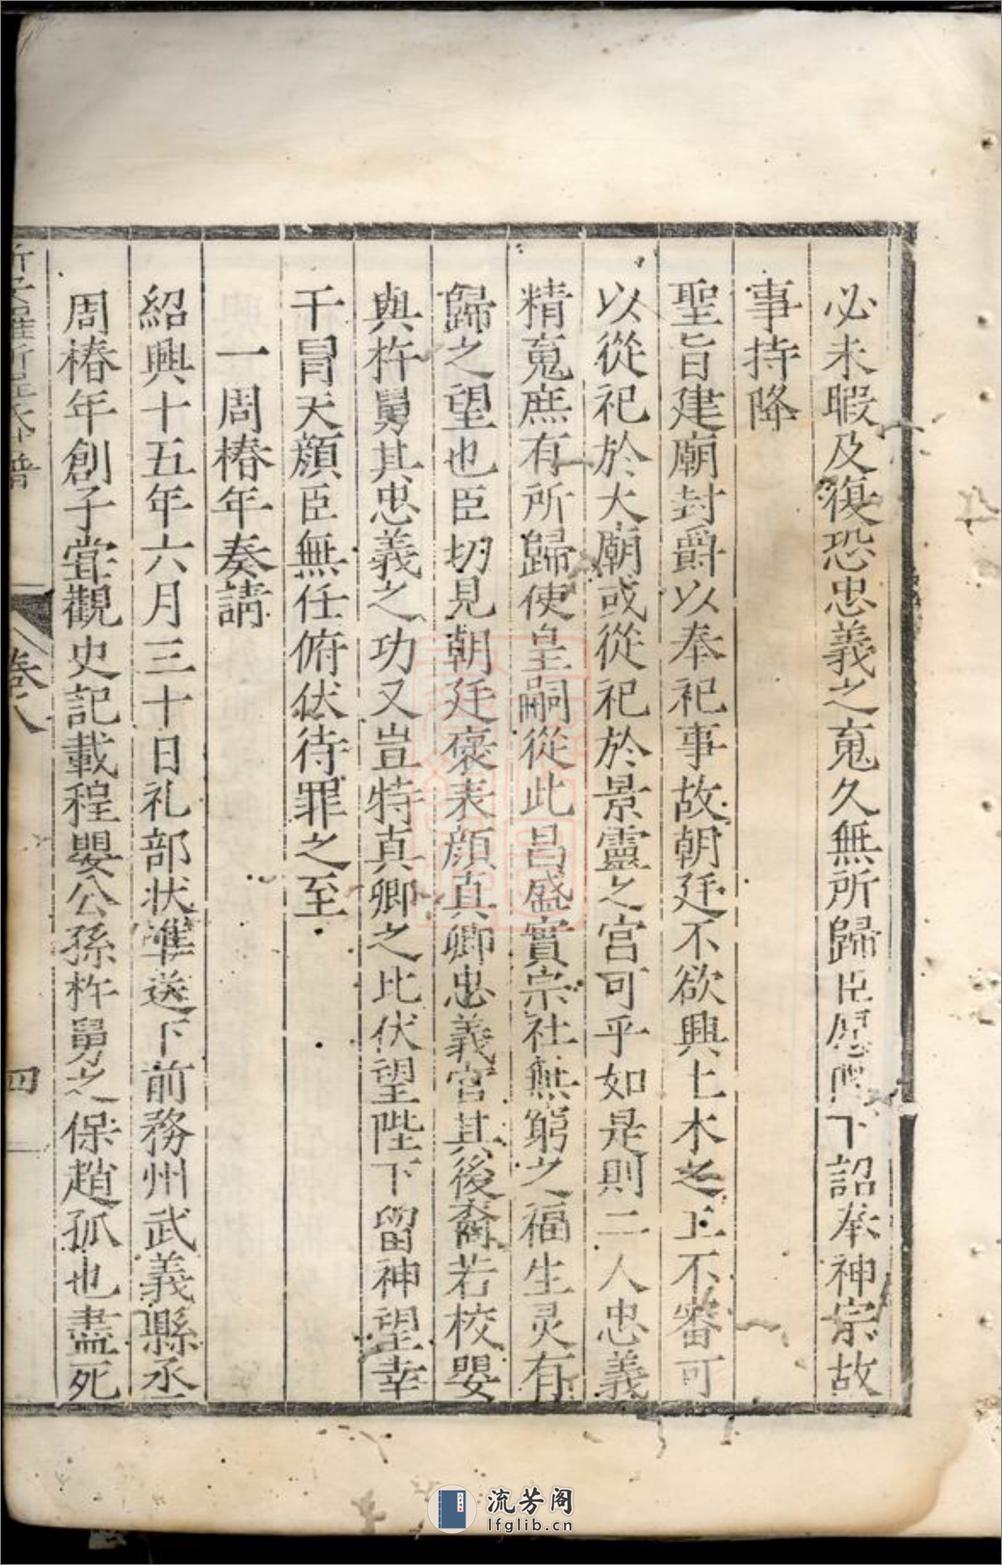 必未暇及復恐忠義之䰟久無所歸臣愿下詔奉神宗故
事持降
聖旨建廟封爵以奉祀事故朝廷不欲興土木之工不審可
以從祀於大廟或從祀於景靈之宮可乎如是則二人忠義
精䰟庶有所歸使皇嗣從此昌盛實宗社無窮之福生灵有
歸之望也臣切見朝廷褒表顔真卿忠義官其後裔若校嬰
與杵舅其忠義之功又豈特真卿之比伏望陛下留神望幸
干冒天顔臣無任俯伏待罪之至
一周椿年奏請
紹興十五年六月三十日礼部狀準送下前務州武義縣丞
周椿年創子甞觀史記載程嬰公孫杵舅之保趙孤也盡死
卷八
四
流芳阁
lfglib.cn